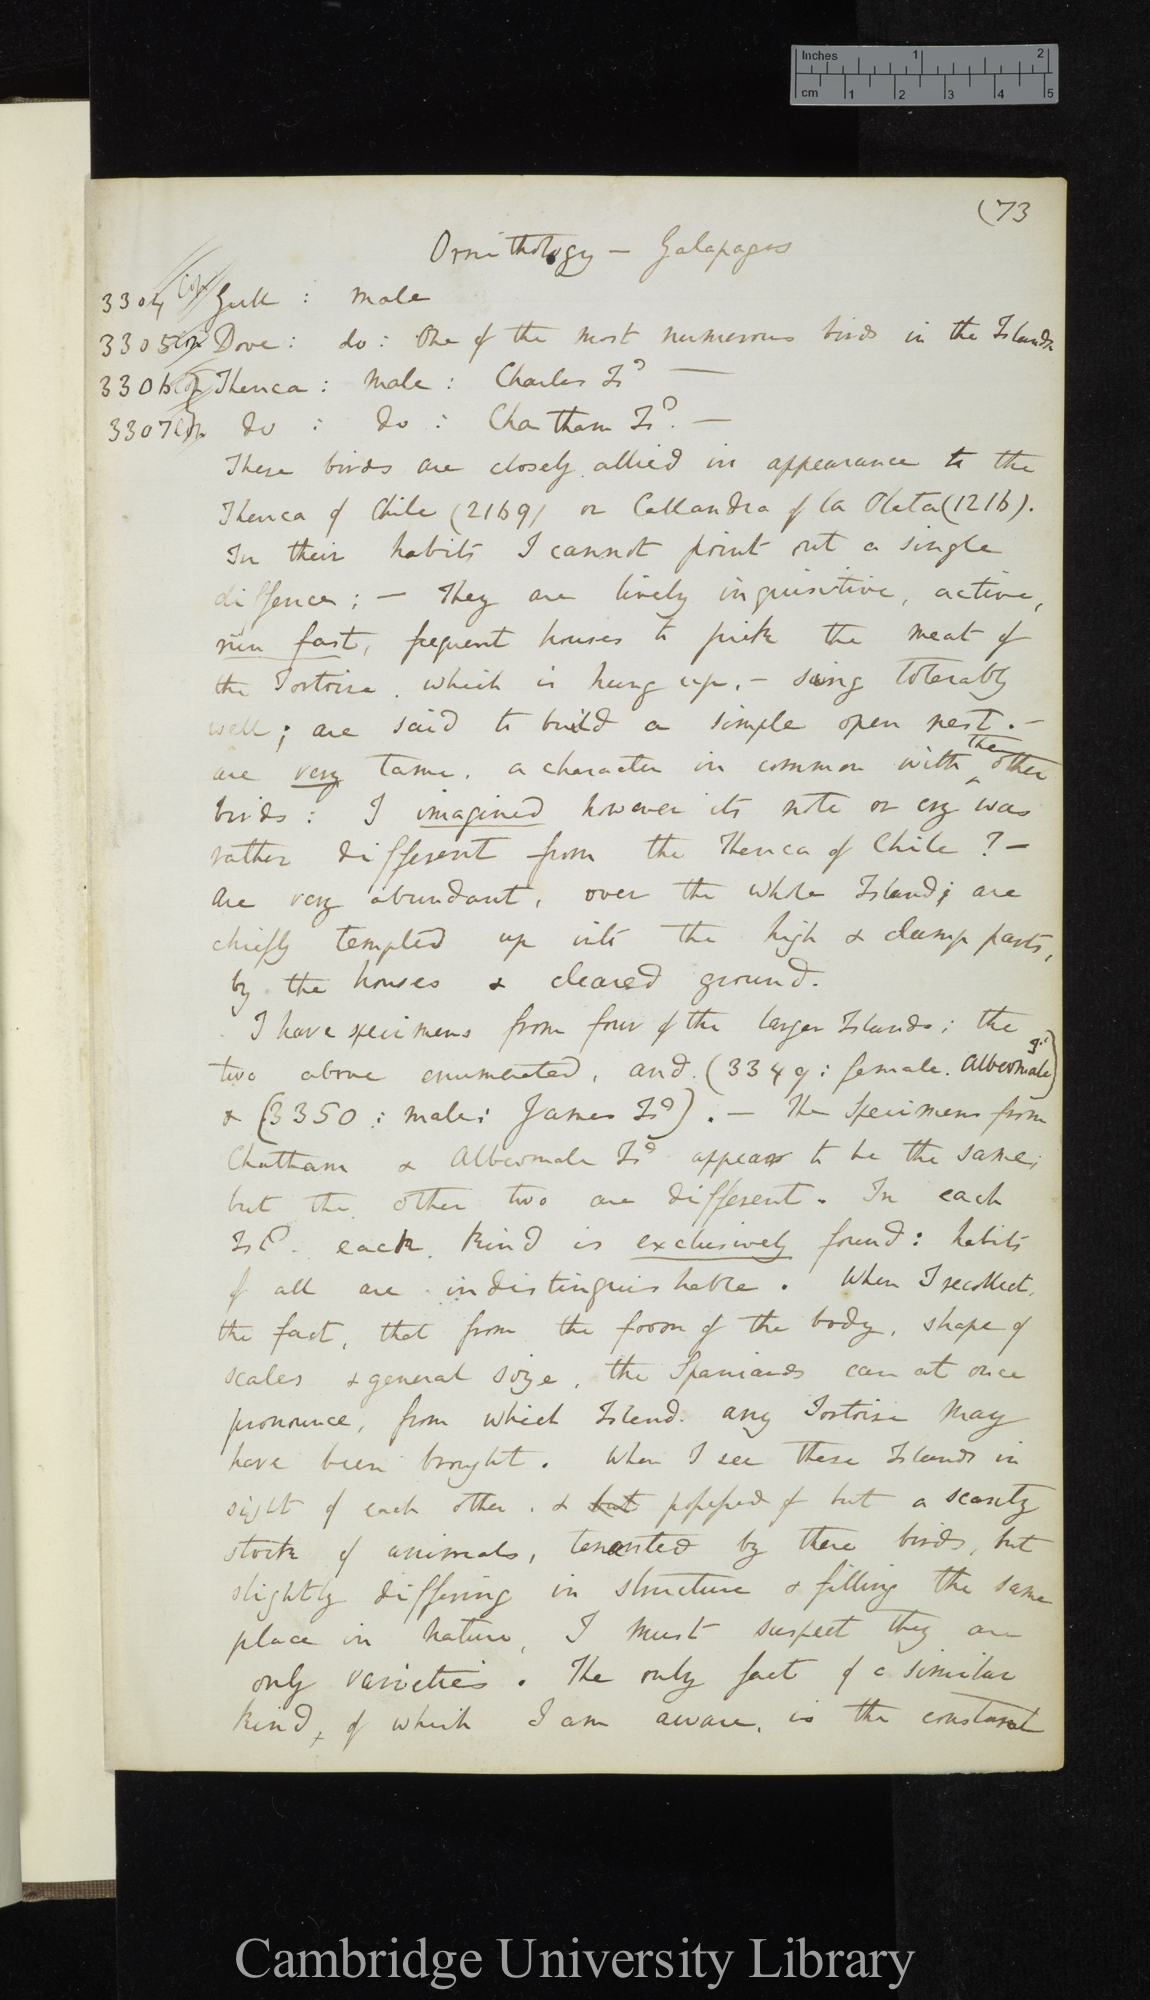 Inches 1 2
cm 1 2 3 4 5
(73
Ornithology — Galapagos
3304 Gull : male
3305 Dove : do : One of the most numerous birds in the Islands
3306 Thenca : Male : Charles Isd —
3307 do : do : Chatham Isd. —
These birds are closely allied in appearance to the
Thenca of Chile (2169) or Callandra of la Plata (1216).
In their habits I cannot point out a single
diffence; — They are lively inquisitive, active,
run fast, frequent houses to pick the meat of
the Tortoise, which is hung up, — sing tolerably
well; are said to build a simple open nest. —
are very tame, a character in common with the other
birds : I imagined however its note or cry was
rather different from the Thenca of Chile ? —
Are very abundant, over the whole Island; are
chiefly tempted up into the high & damp parts,
by the houses & cleared ground.
I have specimens from four of the larger Islands; the
two above enumerated, and (3349: female. Albermale Is.)
& (3350: male: James Isd). — The specimens from
Chatham & Albermale Isd appear to be the same;
but the other two are different. In each
Isd. each kind is exclusively found: habits
of all are indistinguishable. When I recollect,
the fact, that from the form of the body, shape of
scales & general size, the Spaniards can at once
pronounce, from which Island any Tortoise may
have been brought. When I see these Islands in
sight of each other, & but possessed of but a scanty
stock of animals, tenanted by these birds, but
slightly differing in structure & filling the same
place in Nature, I must suspect they are
only varieties. The only fact of a similar
kind, of which I am aware, is the constant
Cambridge University Library